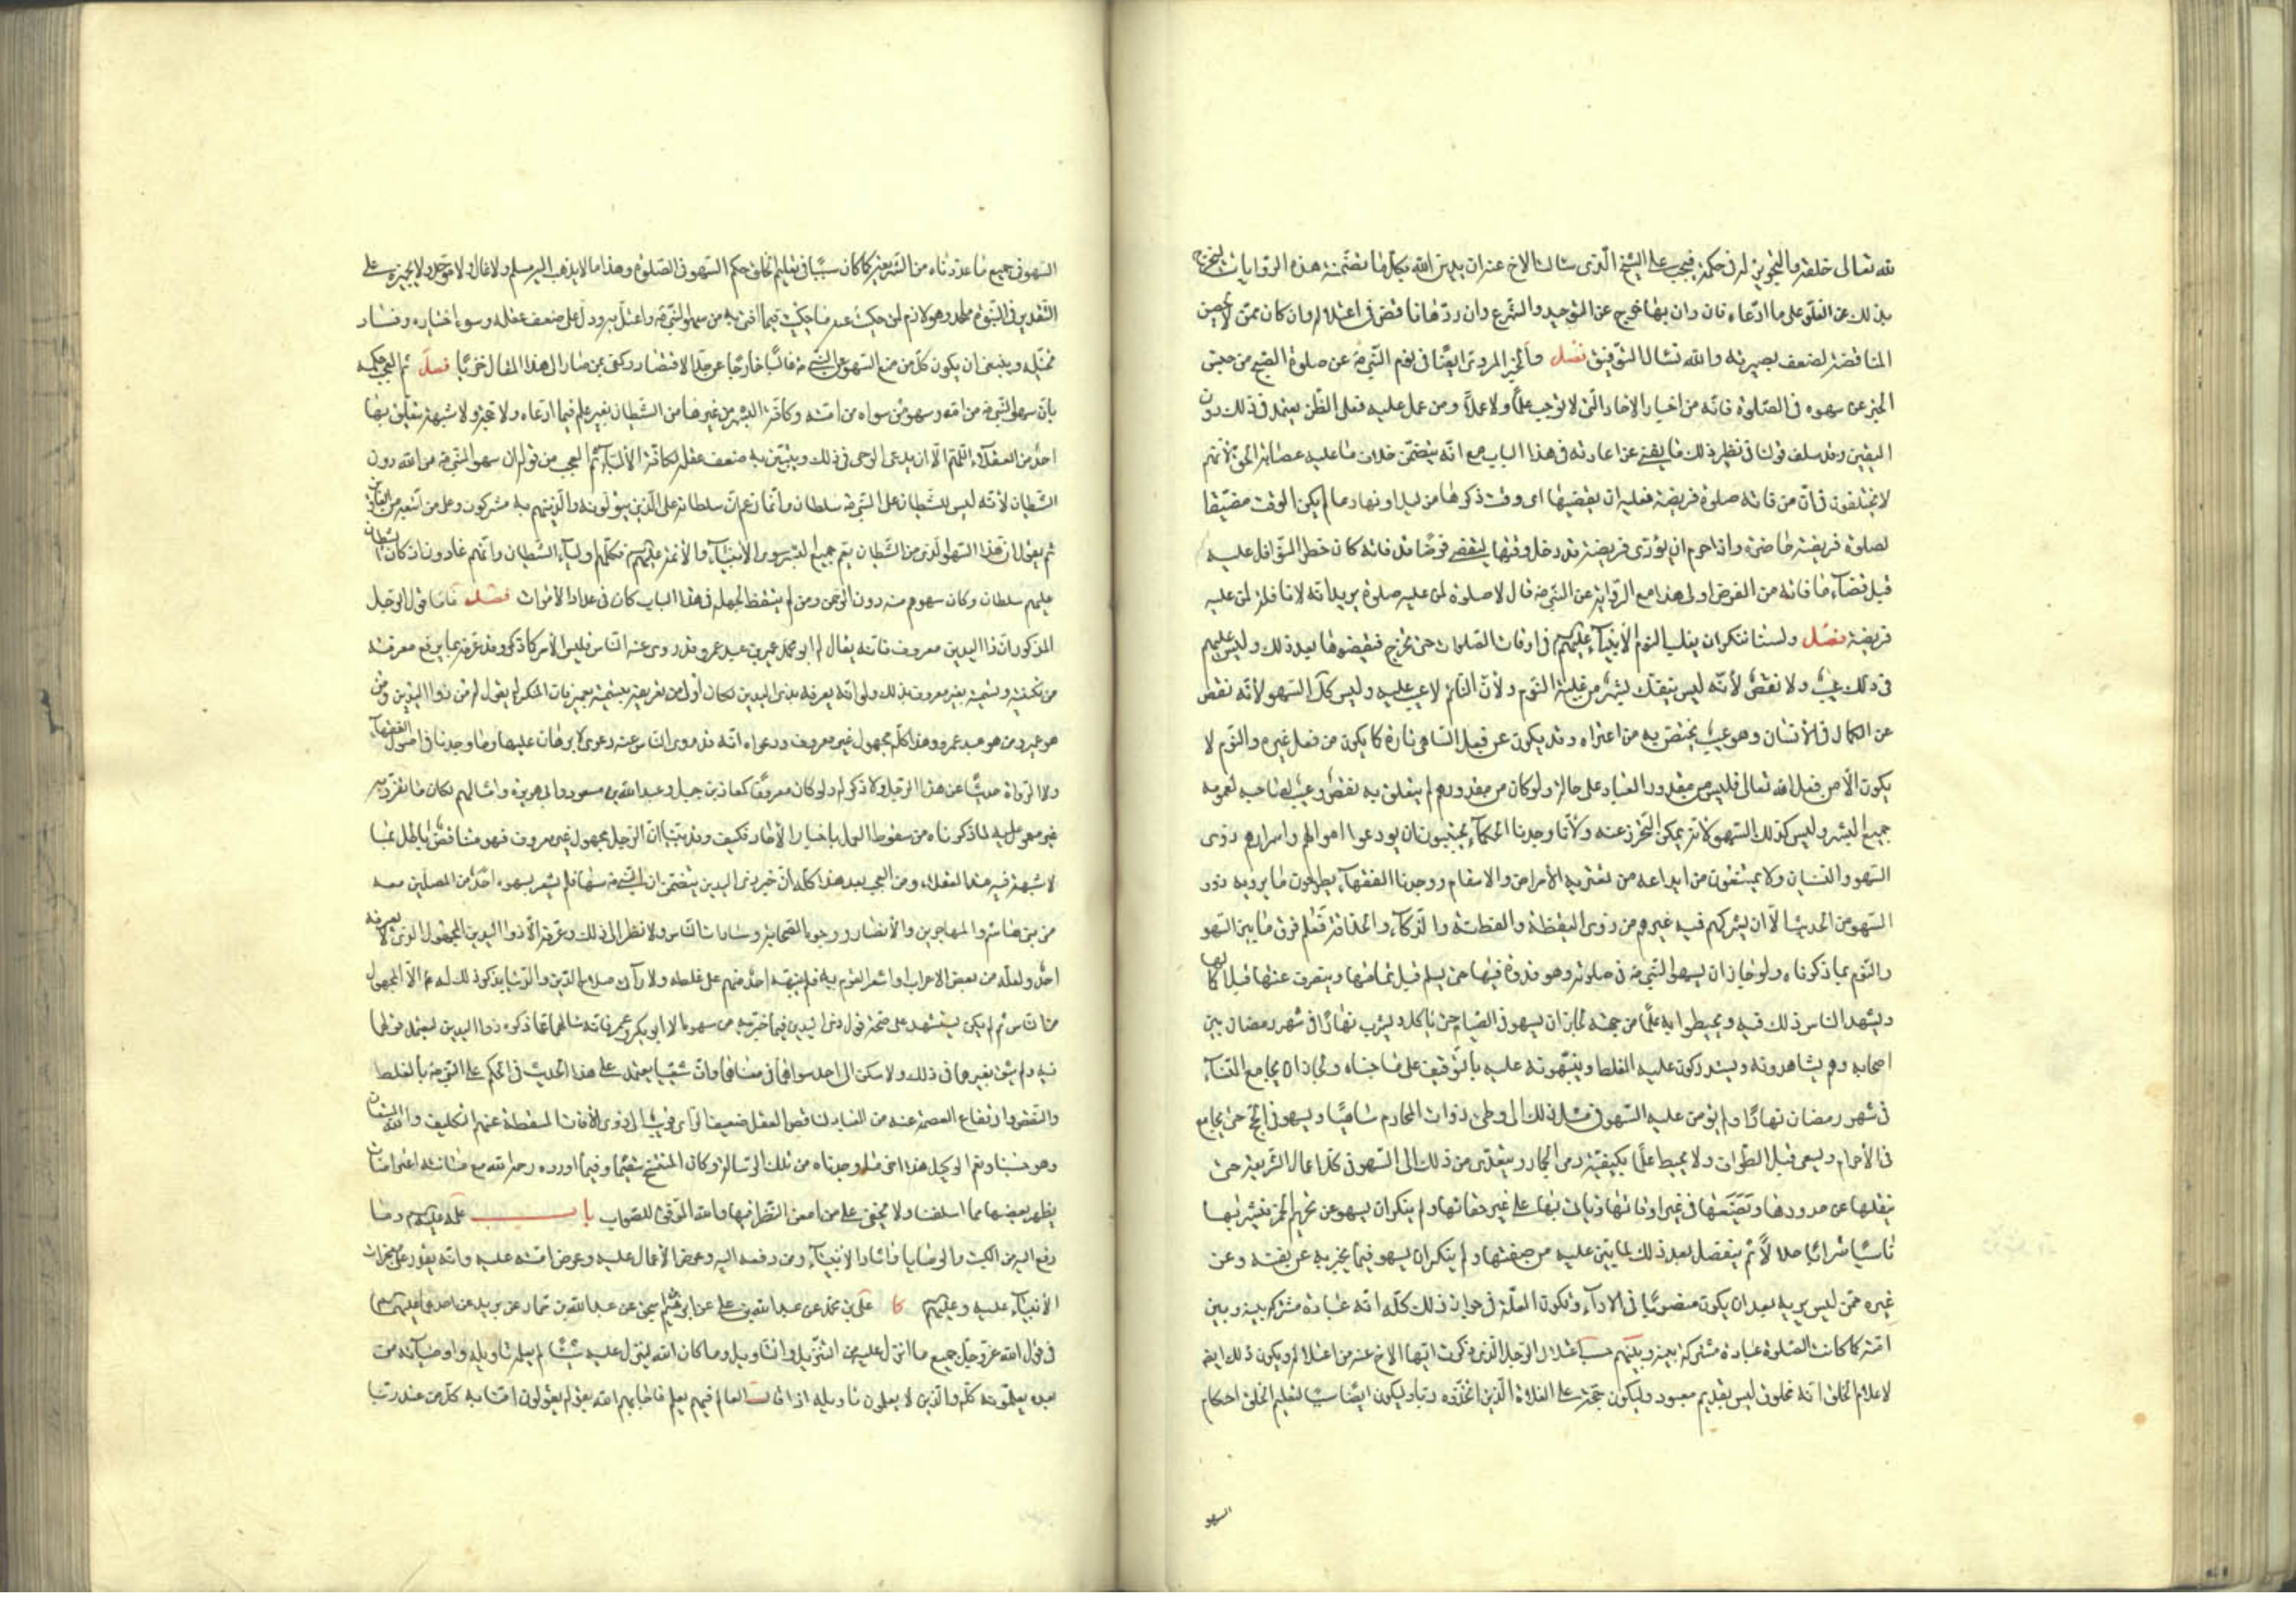 لله تعالى خلقه والتجويز له في حكمة فيجب على الشيخ الذي سالت الاخ عنه ان يدين الله بكل ما تضمنته هذه الروايات ليخرج
بذلك عن الغلو على ما ادعاه فان دان بها خرج عن التوحيد والشرع وان ردّها ناقض في اعتلاله وان كان ممن لا يحسن
المناقضة لضعف بصيرته والله نسأل التوفيق فصل والخبر المروى ايضًا في نوم النبي ص عن صلوة الصبح من جنس
الخبر عن سهوه في الصلوة فانه من اخبار الاحاد التي لا توجب علمًا ولا عملًا ومن عمل عليه فعلى الظن يعتمد في ذلك دون
اليقين وقد سلف قولنا في نظير ذلك ما يغني عن اعادته في هذا الباب مع انه يتضمن خلاف ما عليه عصابة الحق لأنهم
لا يختلفون في ان من فاته صلوة فريضة فعليه ان يقضيها اى وقت ذكرها من ليل او نهار ما لم يكن الوقت مضيّقا
لصلوة فريضة حاضرة واذا حرم ان يؤدى فريضة قد دخل وقتها ليقضى فرضًا قد فاته كان حظر النوافل عليه
قبل قضاء ما فاته من الفرض اولى هذا مع الرواية عن النبي ص قال لا صلوة لمن عليه صلوة يريد انه لا نافلة لمن عليه
فريضة فصل ولسنا ننكر ان يغلب النوم الأنبياء عليهم في اوقات الصلوات حتى تخرج فيقضوها بعد ذلك وليس عليهم
في ذلك عيب ولا نقص لأنه ليس ينفك بشر من غلبة النوم ولأن النائم لا عيب عليه وليس كذلك السهو لأنه نقص
عن الكمال في الأنسان وهو عيب يختص به من اعتراه وقد يكون عن فعل الساهى تارة كما يكون من فعل غيره والنوم لا
يكون الّا من فعل الله تعالى فليس من مقدور العباد على حال ولو كان من مقدورهم لم يتعلق به نقص وعيب لصاحبه لعمومه
جميع البشر وليس كذلك السهو لأنه يمكن التحرز عنه ولأنا وجدنا الحكماء يجتنبون ان يودعوا اموالهم واسرارهم ذوى
السهو والنسيان ولا يمتنعون من ايداعه من تعتريه الأمراض والاسقام ووجدنا الفقهاء يطرحون ما يرويه ذوو
السهو من الحديث الّا ان يشركهم فيه غيرهم من ذوى اليقظة والفطنة والذكاء والحذاقة فعلم فرق ما بين السهو
والنوم بما ذكرناه ولو جاز ان يسهو النبي ص في صلوته وهو قدوة فيها حتى يسلم قبل تمامها وينصرف عنها قبل اكمالها
ويشهد الناس ذلك فيه ويحيطوا به علمًا من جهته لجاز ان يسهو في الصيام حتى يأكل ويشرب نهارًا في شهر رمضان بين
اصحابه وهم يشاهدونه ويستدركون عليه الغلط وينبّهونه عليه بالتوقيف على ما جناه ولجاز ان يجامع النساء
في شهر رمضان نهارًا ولم يؤمن عليه السهو في مثل ذلك الى وطئ ذوات المحارم ساهيًا ويسهو في الحج حتى يجامع
في الأحرام ويسعى قبل الطواف ولا يحيط علمًا بكيفية رمى الجمار ويتعدى من ذلك الى السهو في كل اعمال الشريعة حتى
ينقلها عن حدودها ويضعها في غير اوقاتها ويأتي بها على غير حقائقها ولم ينكر ان يسهو عن تحريم الخمر فيشربها
ناسيًا شرابًا حلالًا ثم يتفضل بعد ذلك لما يتبين عليه من صفتها ولم ينكر ان يسهو فيما يخبر به عن نفسه وعن
غيره ممن ليس بربه بعد ان يكون منصوبًا في الاداء وتكون العلة في جواز ذلك كله انه عبادة مشتركة بينه وبين
امته كما كانت الصلوة عبادة مشتركة بينه وبينهم حسب اعتلال الرجل الذي ذكرت ايها الاخ عنه من اعتلاله ويكون ذلك ايضا
لاعلام الخلق انه مخلوق ليس بقديم معبود وليكون حجة على الغلاة الذين اتخذوه ربا وليكون ايضًا سببا لتعليم الخلق احكام
السهو
السهو في جميع ما عددناه من الشريعة كما كان سببًا في تعليم الخلق حكم السهو في الصلوة وهذا ما لا يذهب اليه مسلم ولا غال ولا موحد ولا يجيزه على
التقدير في النبوة ملحد وهو لازم لمن حكيت عنه ما حكيت فيما افتى به من سهو النبي ص واعتل به ودل على ضعف عقله وسوء اختياره وفساد
تخيّله وينبغي ان يكون كل من منع السهو على النبي ص غاليًا خارجًا عن حد الاقتصاد وكفى بمن صار الى هذا المقال خزيًا فصل ثم العجب حكمه
بان سهو النبي ص من الله وسهو من سواه من امته وكافة البشر من غيرها من الشيطان بغير علم فيما ادعاه ولا حجة ولا شبهة يتعلق بها
احد من العقلاء اللهم الّا ان يدعى الوحى في ذلك ويتبين به ضعف عقله لكافة الألباء ثم العجب من قوله ان سهو النبي ص من الله دون
الشيطان لأنه ليس للشيطان على النبي ص سلطان وانما زعم ان سلطانه على الذين يتولونه والذين هم به مشركون وعلى من اتبعه من الغاوين
ثم يقول ان هذا السهو الذى من الشيطان يعم جميع البشر سوى الأنبياء والأئمة عليهم فكلهم اولياء الشيطان وانهم غاوون اذ كان للشيطان
عليهم سلطان وكان سهوهم منه دون الرحمن ومن لم يتيقظ لجهله في هذا الباب كان في عداد الأموات فصل فاما قول الرجل
المذكور ان ذا اليدين معروف فانه يقال له ابو محمد عمير بن عبد عمرو وقد روى عنه الناس فليس الأمر كما ذكر وقد عرفه بما يرفع معرفته
من تكنيته وتسميته بغير معروف بذلك ولو انه يعرف بذى اليدين لكان اولى من تعريفه بتسميته بعمير فان المنكر له يقول له من ذو اليدين ومن
هو عمير ومن هو عبد عمرو وهذا كله مجهول غير معروف ودعواه انه قد روى الناس عنه دعوى لا برهان عليها وما وجدنا في اصول الفقهاء
ولا الرواة حديثًا عن هذا الرجل ولا ذكر له ولو كان معروفًا كمعاذ بن جبل وعبد الله بن مسعود وابي هريرة وامثالهم لكان ما تفرد به
غير معمول به لما ذكرناه من سقوط العمل باخبار الأحاد فكيف وقد بينا ان الرجل مجهول غير معروف فهو متناقض باطل بما
لا شبهة فيه عند العقلاء ومن العجب بعد هذا كله ان خبر ذى اليدين يتضمن ان النبي ص سها فلم يشعر بسهوه احد من المصلين معه
من بنى هاشم والمهاجرين والأنصار ووجوه الصحابة وسادات الناس ولا نظر الى ذلك وعرفه الّا ذو اليدين المجهول الذى لا يعرفه
احد ولعله من بعض الاعراب او اشعر القوم به فلم ينبهه احد منهم على غلطه ولا رأى صلاح الدين والدنيا بذكر ذلك له ع الّا المجهول
من الناس ثم لم يكن يستشهد على صحة قول ذى اليدين فيما خبّر به من سهوه الا ابو بكر وعمر فانه سالهما عما ذكره ذو اليدين ليعتمد قولهما
فيه ولم يثق بغيرهما في ذلك ولا سكن الى احد سواهما في معناهما وان شيعيّا يعتمد على هذا الحديث في الحكم على النبي ص بالغلط
والنقص وارتفاع العصمة عنه من العباد لناقص العقل ضعيف الرأى قريب الى ذوى الآفات المسقطة عنهم التكليف والله المستعان
وهو حسبنا ونعم الوكيل هذا اخر ما وجدناه من تلك الرسالة وكان المنتسخ سقيمًا وفيما اورده رحمه الله مع متانته اعتراضات
يظهر بعضها مما اسلفنا ولا يخفى على من امعن النظر فيها والله الموفق للصواب باب علمه عليه السلام وما
دفع اليه من الكتب والوصايا واثار الانبياء ومن دفعه اليه وعرض الأعمال عليه وعرض امته عليه وانه يقدر على معجزات
الأنبياء عليه وعليهم كا علي بن محمد عن عبد الله بن علي عن ابراهيم بن اسحق عن عبد الله بن حماد عن بريد عن احدهما عليهما السلام
في قول الله عز وجل جميع ما انزل عليه من التنزيل والتأويل وما كان الله لينزل عليه شيئًا لم يعلمه تأويله واوصيائه من
بعده يعلمونه كله والذين لا يعلمون تأويله اذا قال العالم فيهم بعلم فاجابهم الله بقوله يقولون امنا به كل من عند ربنا